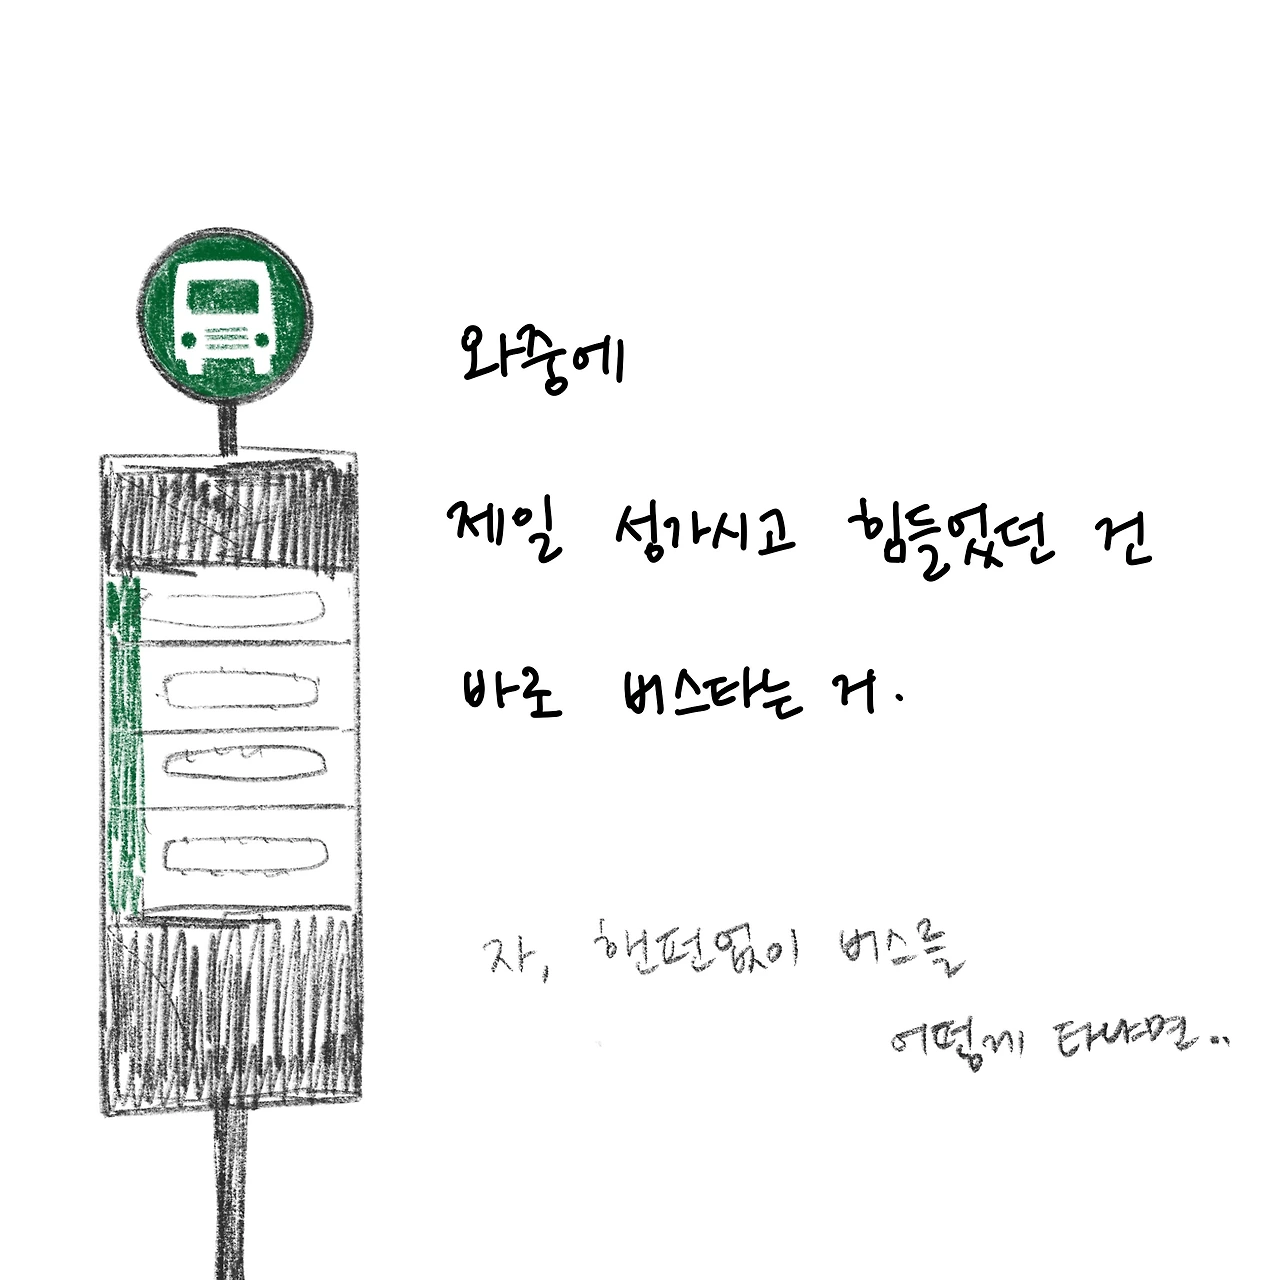 와중에
제일 성가시고 힘들었던 건
바로 버스타는 거.
자, 핸펀없이 버스를
어떻게 타냐면..